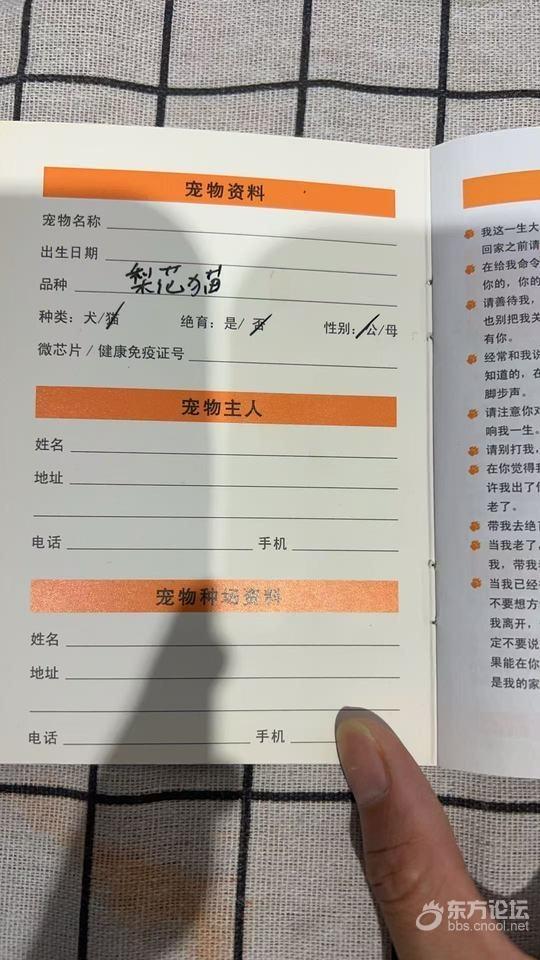 宠物资料
宠物名称
出生日期
品种 梨花猫
种类：犬/猫 绝育：是/否 性别：公/母
微芯片 / 健康免疫证号
宠物主人
姓名
地址
电话 手机
宠物种场资料
姓名
地址
电话 手机
我这一生大
回家之前请
在给我命令
你的，你的
请善待我，
也别把我关
有你。
经常和我说
知道的，在
脚步声。
请注意你对
响我一生。
请别打我，
在你觉得我
许我出了什
老了。
带我去绝育
当我老了，
我，带我
当我已经
不要想方
我离开，
定不要说
果能在你
是我的家
东方论坛
bbs.cnool.net